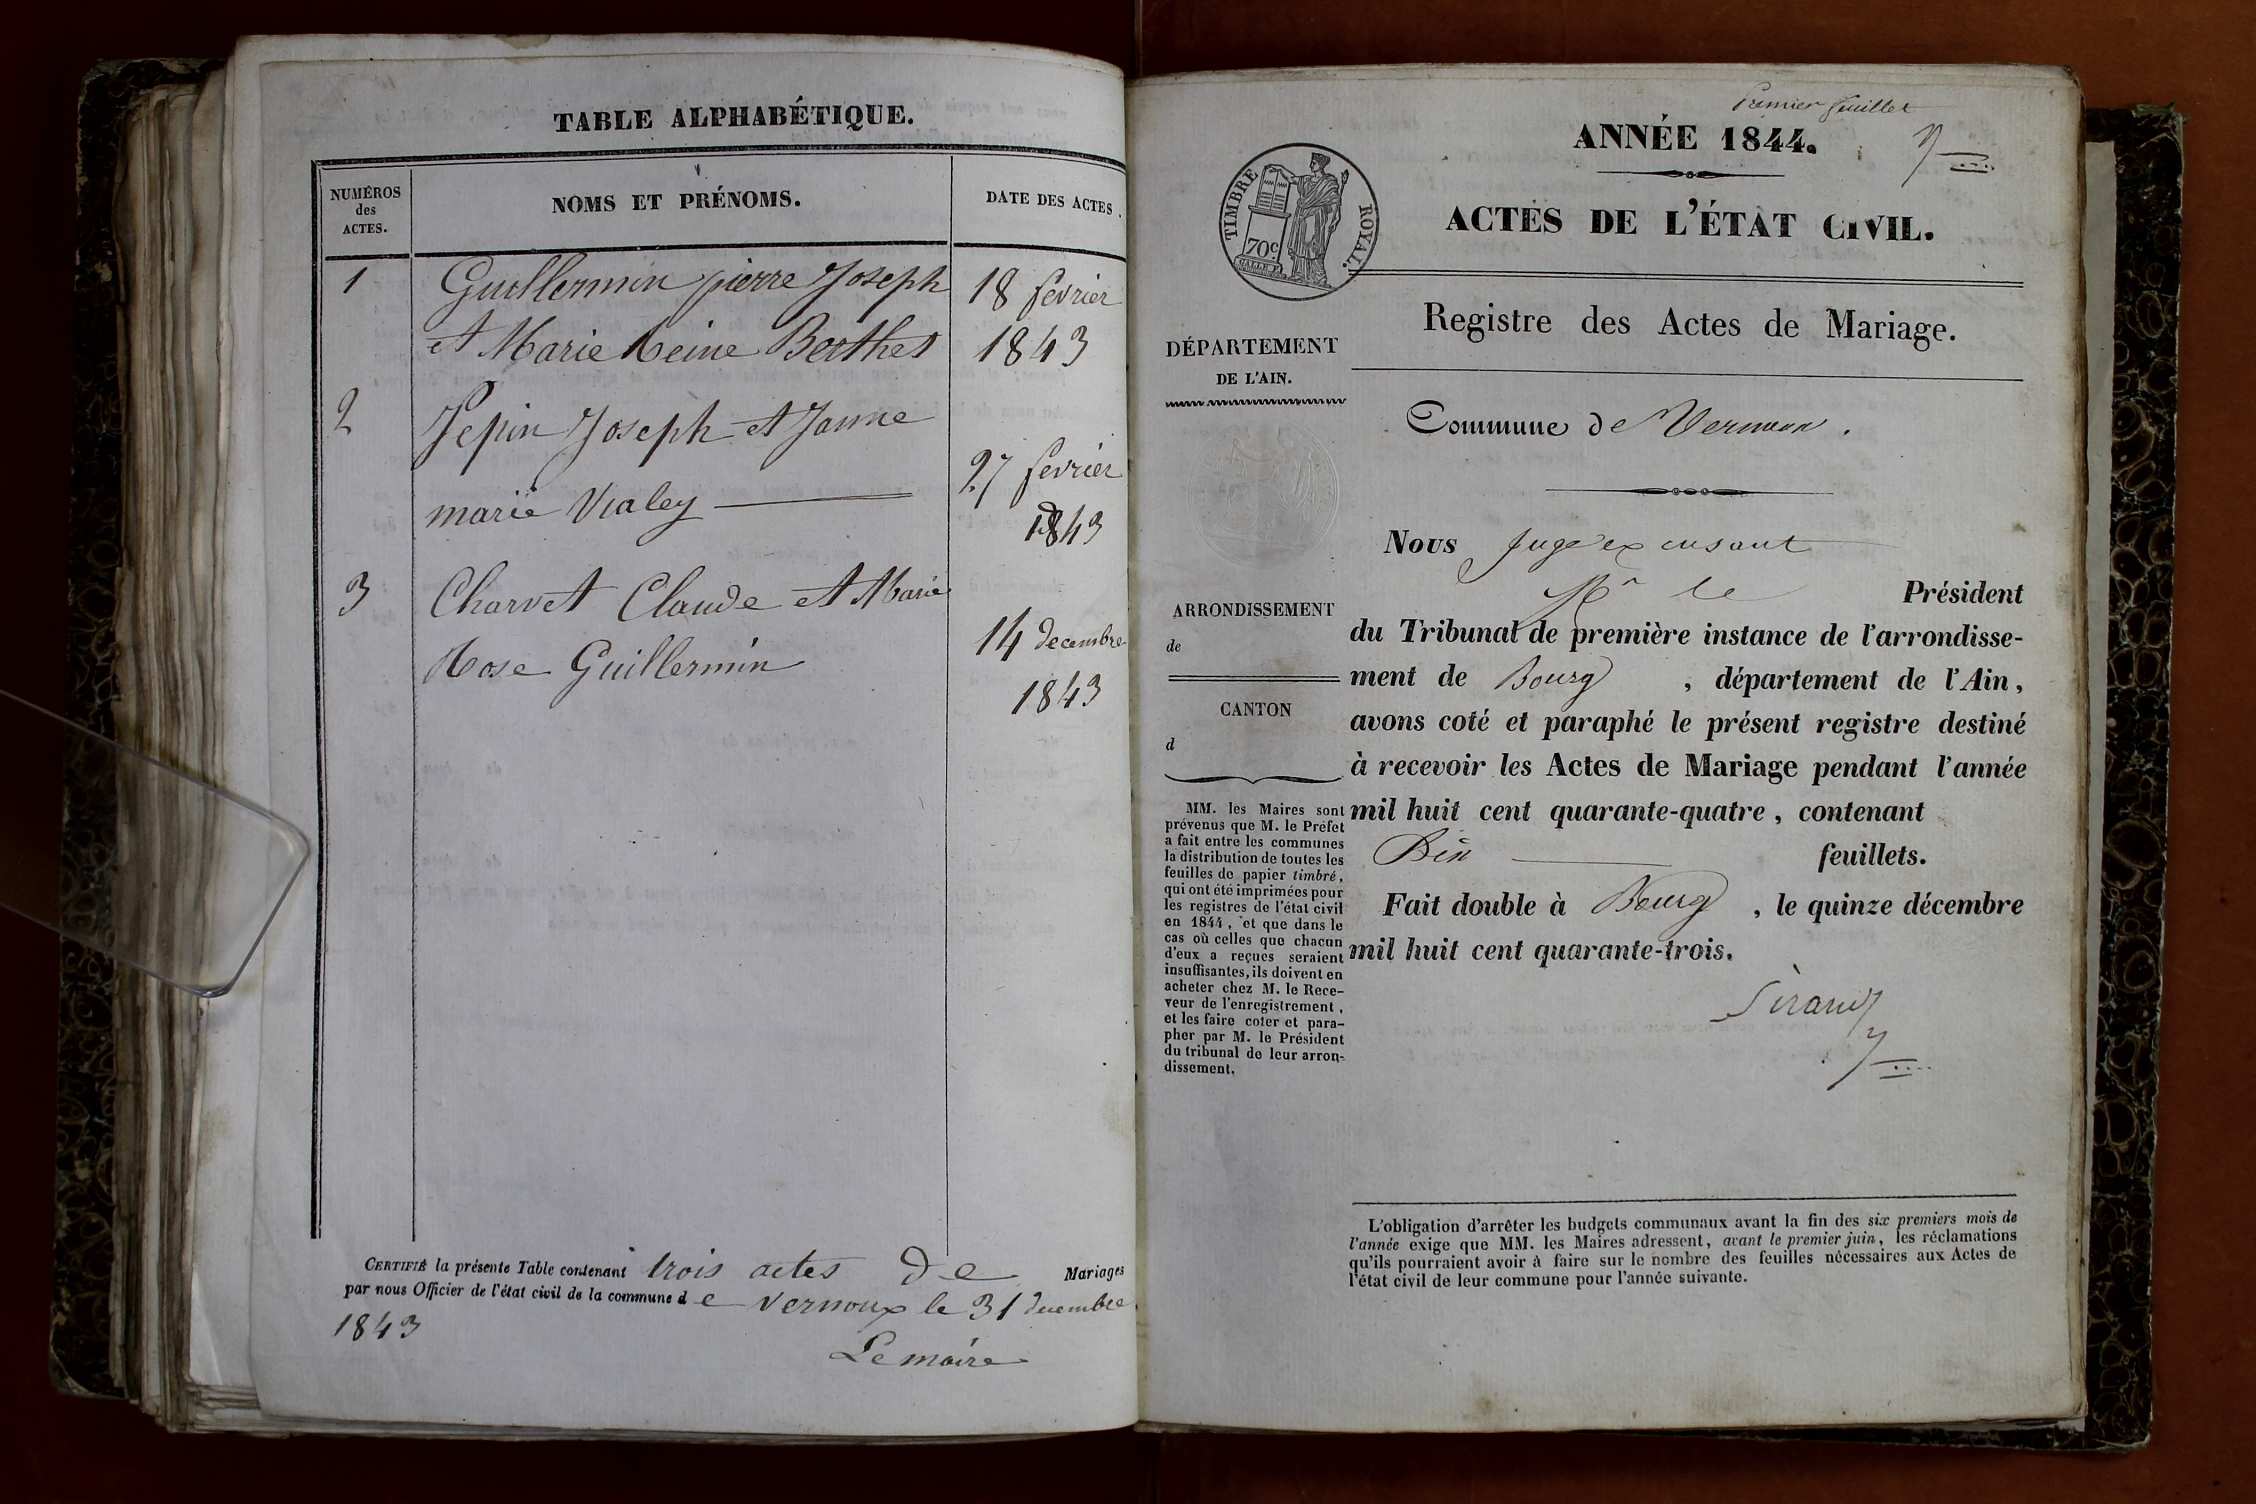 TABLE ALPHABÉTIQUE.
NUMÉROS
des
ACTES.
NOMS ET PRÉNOMS.
DATE DES ACTES.
1
Guillermin pierre Joseph
18 fevrier
et Marie Reine Berthet
1843
2
Pepin Joseph et Janne
27 fevrier
marie Vialey
1843
3
Charvet Claude et Marie
14 decembre
Rose Guillermin
1843
CERTIFIÉ la présente Table contenant trois actes de Mariages
par nous Officier de l'état civil de la commune de vernoux le 31 decembre
1843
Le maire
Premier feuillet
ANNÉE 1844.
ACTES DE L'ÉTAT CIVIL.
TIMBRE ROYAL.
70c
Registre des Actes de Mariage.
DÉPARTEMENT
DE L'AIN.
Commune de Vernoux.
ARRONDISSEMENT
de
CANTON
d
MM. les Maires sont
prévenus que M. le Préfet
a fait entre les communes
la distribution de toutes les
feuilles de papier timbré,
qui ont été imprimées pour
les registres de l'état civil
en 1844, et que dans le
cas où celles que chacun
d'eux a reçues seraient
insuffisantes, ils doivent en
acheter chez M. le Rece-
veur de l'enregistrement,
et les faire coter et para-
pher par M. le Président
du tribunal de leur arron-
dissement.
Nous Juge
Mr le Président
du Tribunal de première instance de l'arrondisse-
ment de Bourg, département de l'Ain,
avons coté et paraphé le présent registre destiné
à recevoir les Actes de Mariage pendant l'année
mil huit cent quarante-quatre, contenant
feuillets.
Fait double à Bourg, le quinze décembre
mil huit cent quarante-trois.
Sirand
L'obligation d'arrêter les budgets communaux avant la fin des six premiers mois de
l'année exige que MM. les Maires adressent, avant le premier juin, les réclamations
qu'ils pourraient avoir à faire sur le nombre des feuilles nécessaires aux Actes de
l'état civil de leur commune pour l'année suivante.